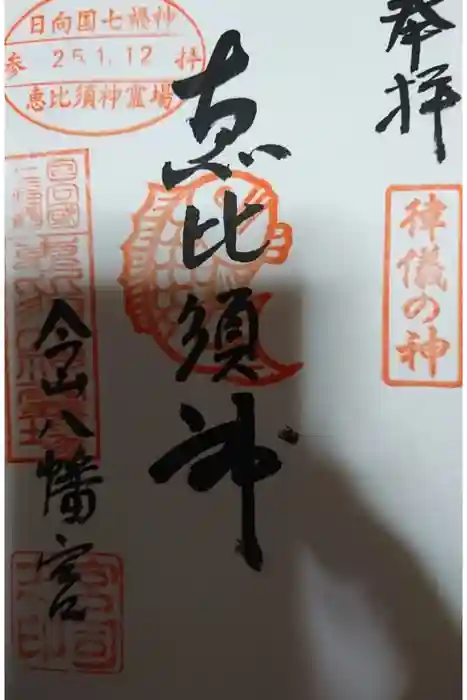 奉拝
律儀の神
恵比須神
日向国七福神
参 25.1.12 拝
恵比須神霊場
今山八幡宮